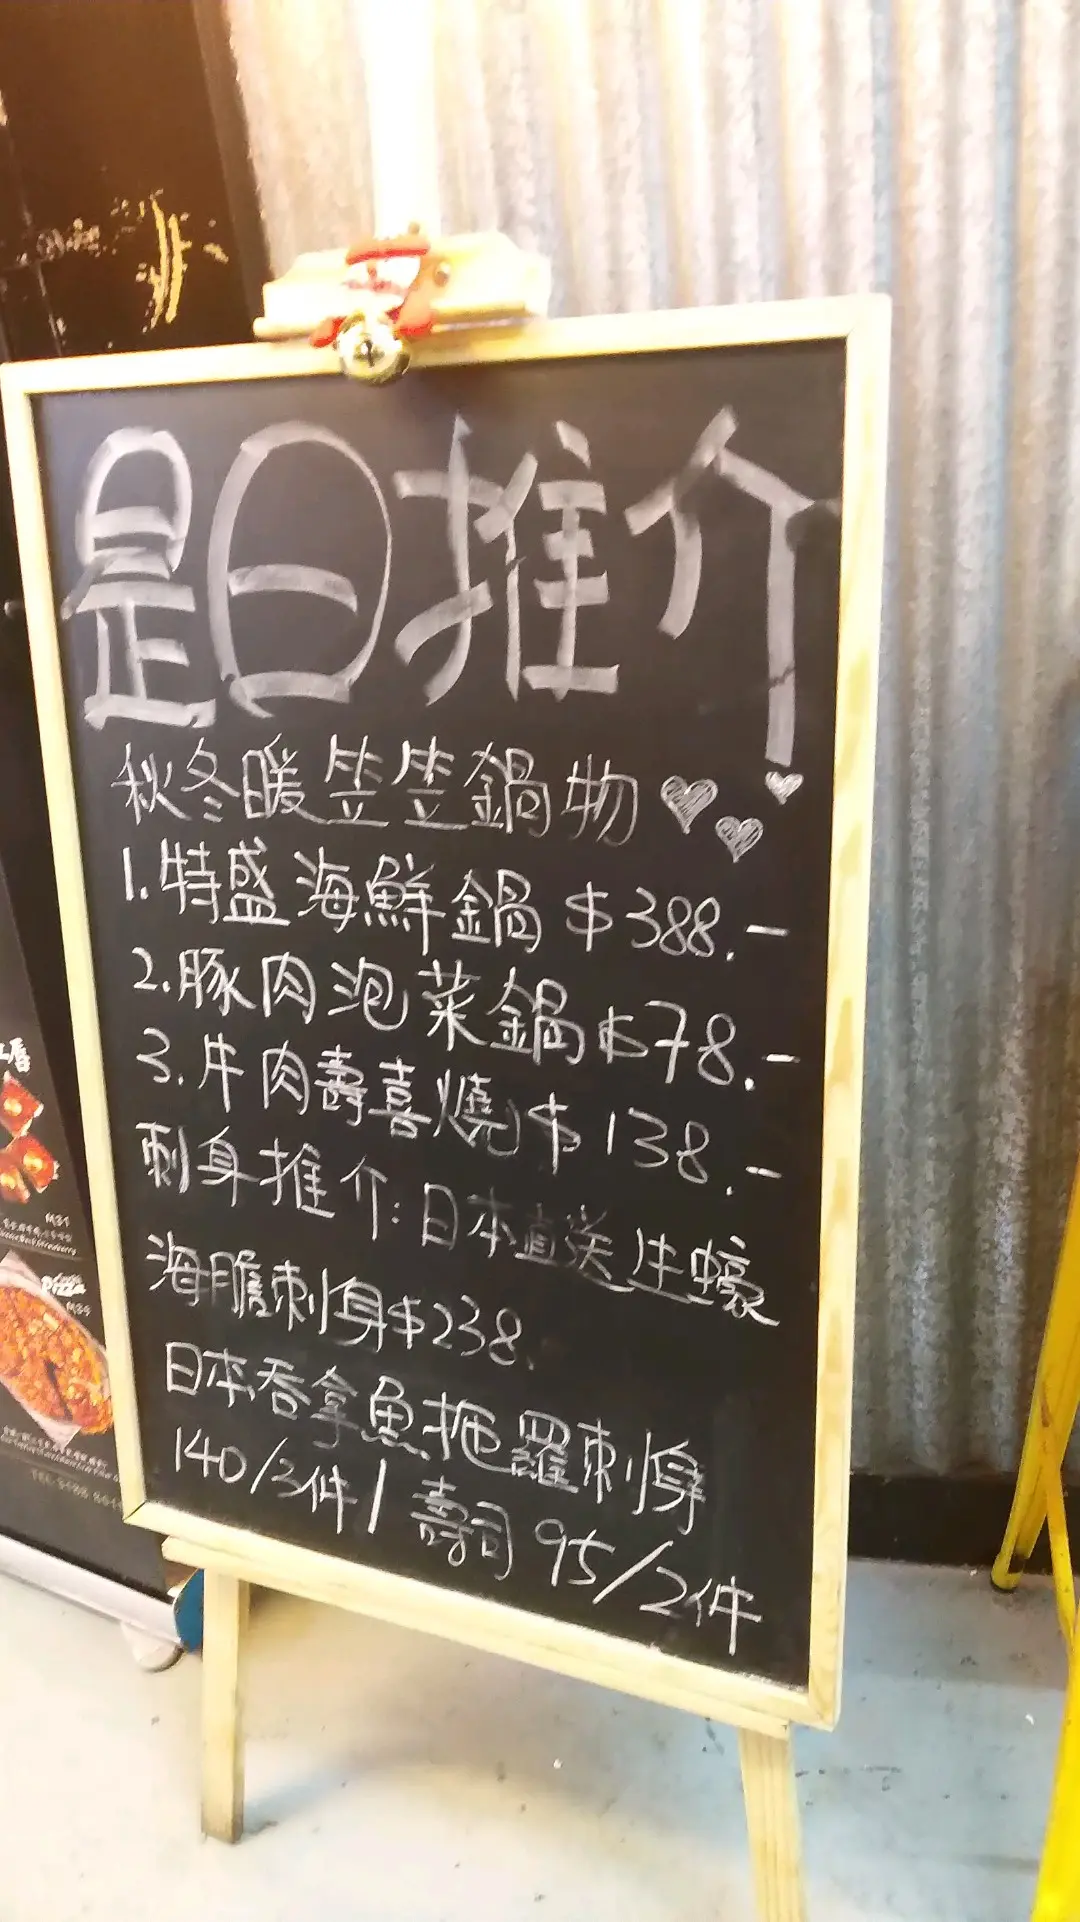 是日推介
秋冬暖笠笠鍋物
1.特盛海鮮鍋 $388.-
2.豚肉泡菜鍋$78.-
3.牛肉壽喜燒$138.-
刺身推介:日本直送生蠔
海膽刺身$238.
日本吞拿魚拖羅刺身
140/3件/壽司95/2件
M31
Pizza
M34